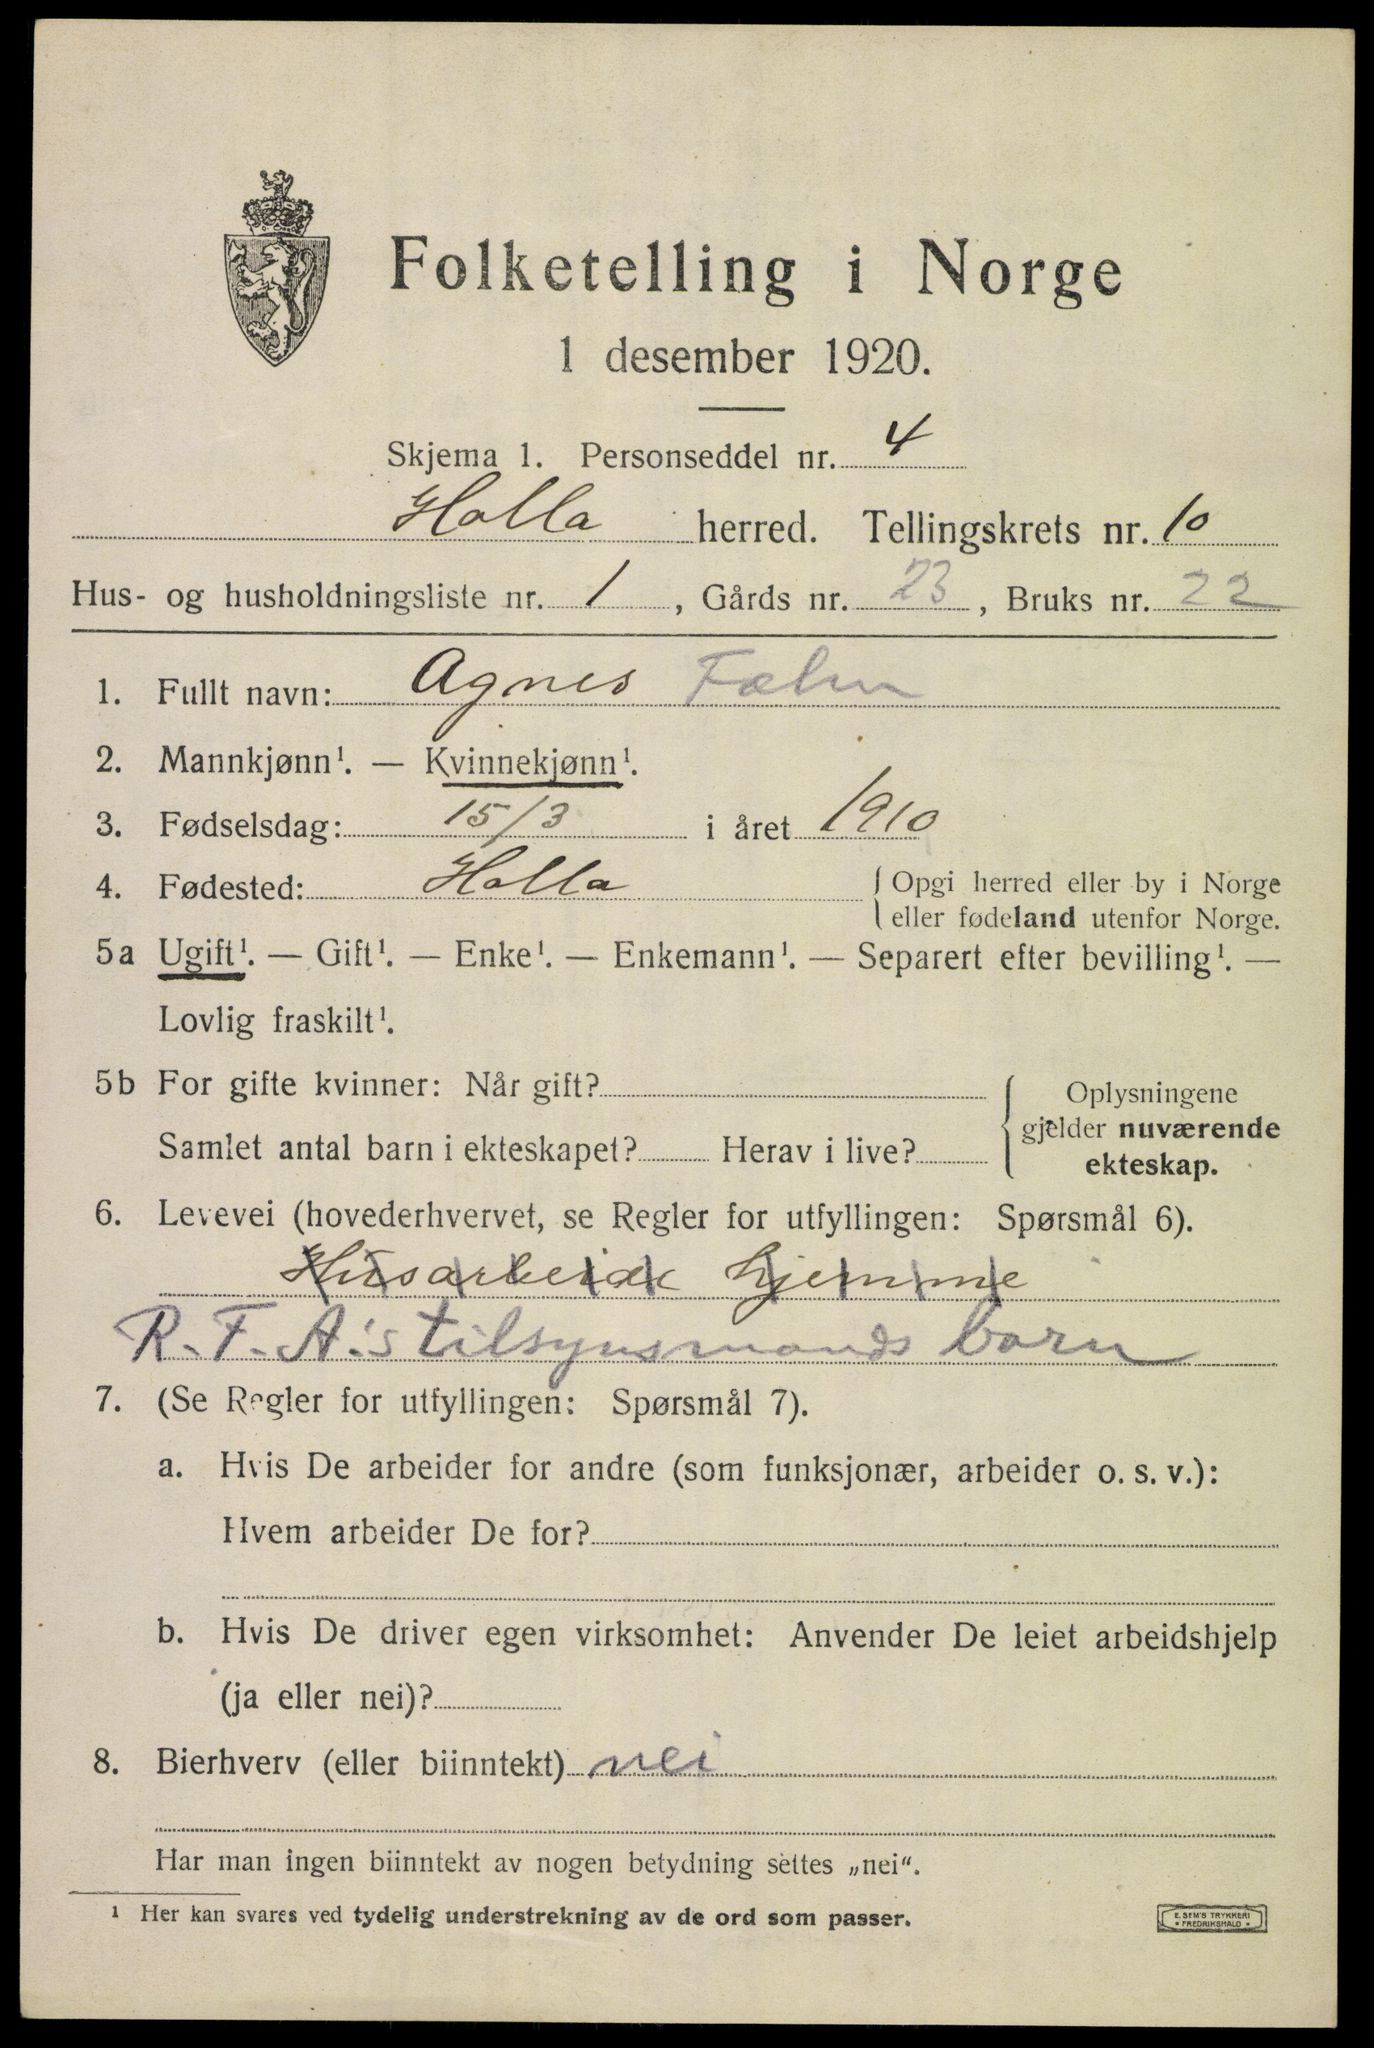 Folketelling i Norge
1 desember 1920.
Skjema 1. Personseddel nr. 4
Holla herred. Tellingskrets nr. 10
Hus- og husholdningsliste nr. 1, Gårds nr. 23, Bruks nr. 22
1. Fullt navn: Agnes
2. Mannkjønn¹. — Kvinnekjønn¹.
3. Fødselsdag: 15/3 i året 1910
4. Fødested: Holla { Opgi herred eller by i Norge
eller fødeland utenfor Norge.
5a Ugift¹. — Gift¹. — Enke¹. — Enkemann¹. — Separert efter bevilling¹. —
Lovlig fraskilt¹.
5b For gifte kvinner: Når gift? { Oplysningene
gjelder nuværende
Samlet antal barn i ekteskapet? Herav i live?
ekteskap.
6. Levevei (hovederhvervet, se Regler for utfyllingen: Spørsmål 6).
Husarbeide hjemme
R.F.A.'s tilsynsmands barn
7. (Se Regler for utfyllingen: Spørsmål 7).
a. Hvis De arbeider for andre (som funksjonær, arbeider o. s. v.):
Hvem arbeider De for?
b. Hvis De driver egen virksomhet: Anvender De leiet arbeidshjelp
(ja eller nei)?
8. Bierhverv (eller biinntekt) nei
Har man ingen biinntekt av nogen betydning settes „nei".
¹ Her kan svares ved tydelig understrekning av de ord som passer.
E. SEM'S TRYKKERI
• FREDRIKSHALD •